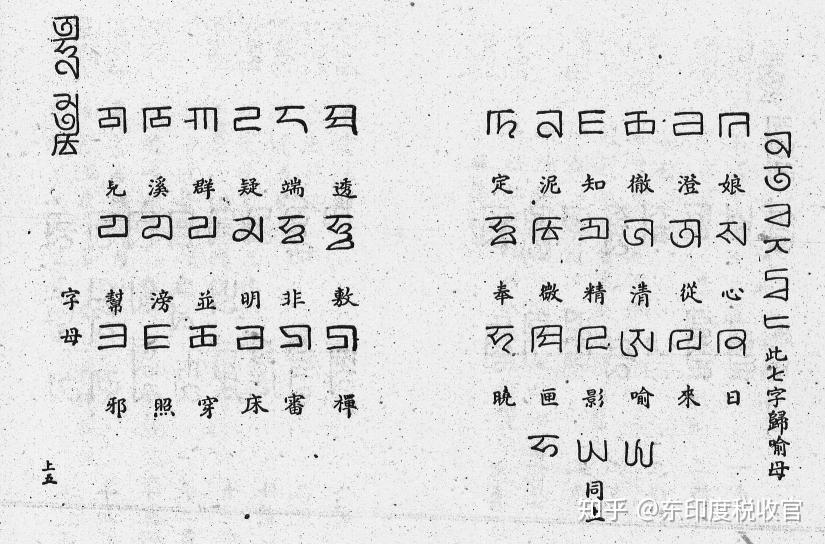 字母
ꡂ ꡁ ꡀ ꡃ ꡊ ꡉ
見 溪 群 疑 端 透
ꡎ ꡍ ꡌ ꡏ ꡤ ꡤ
幫 滂 並 明 非 敷
ꡕ ꡆ ꡅ ꡄ ꡚ ꡚ
邪 照 穿 床 審 禪
上五
ꡈ ꡋ ꡆ ꡅ ꡄ ꡇ
定 泥 知 徹 澄 娘
ꡤ ꡓ ꡒ ꡑ ꡐ ꡛ
奉 微 精 清 從 心
ꡜ ꡣ ꡖ ꡝ ꡙ ꡔ
曉 匣 影 喻 來 日
同上
此七字歸喻母
知乎 @东印度税收官